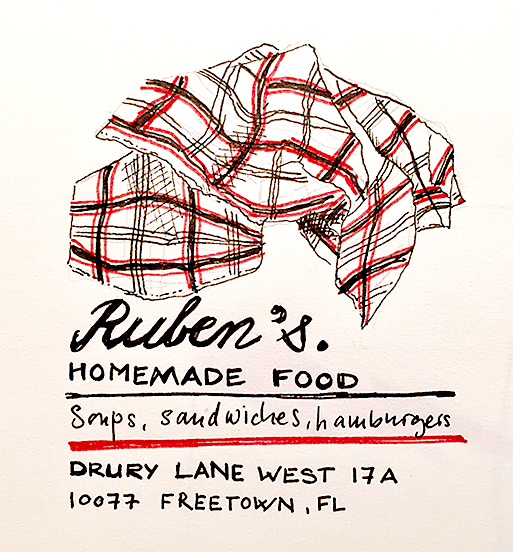 Ruben's.
HOMEMADE FOOD
Soups, sandwiches, hamburgers
DRURY LANE WEST 17A
10077 FREETOWN, FL